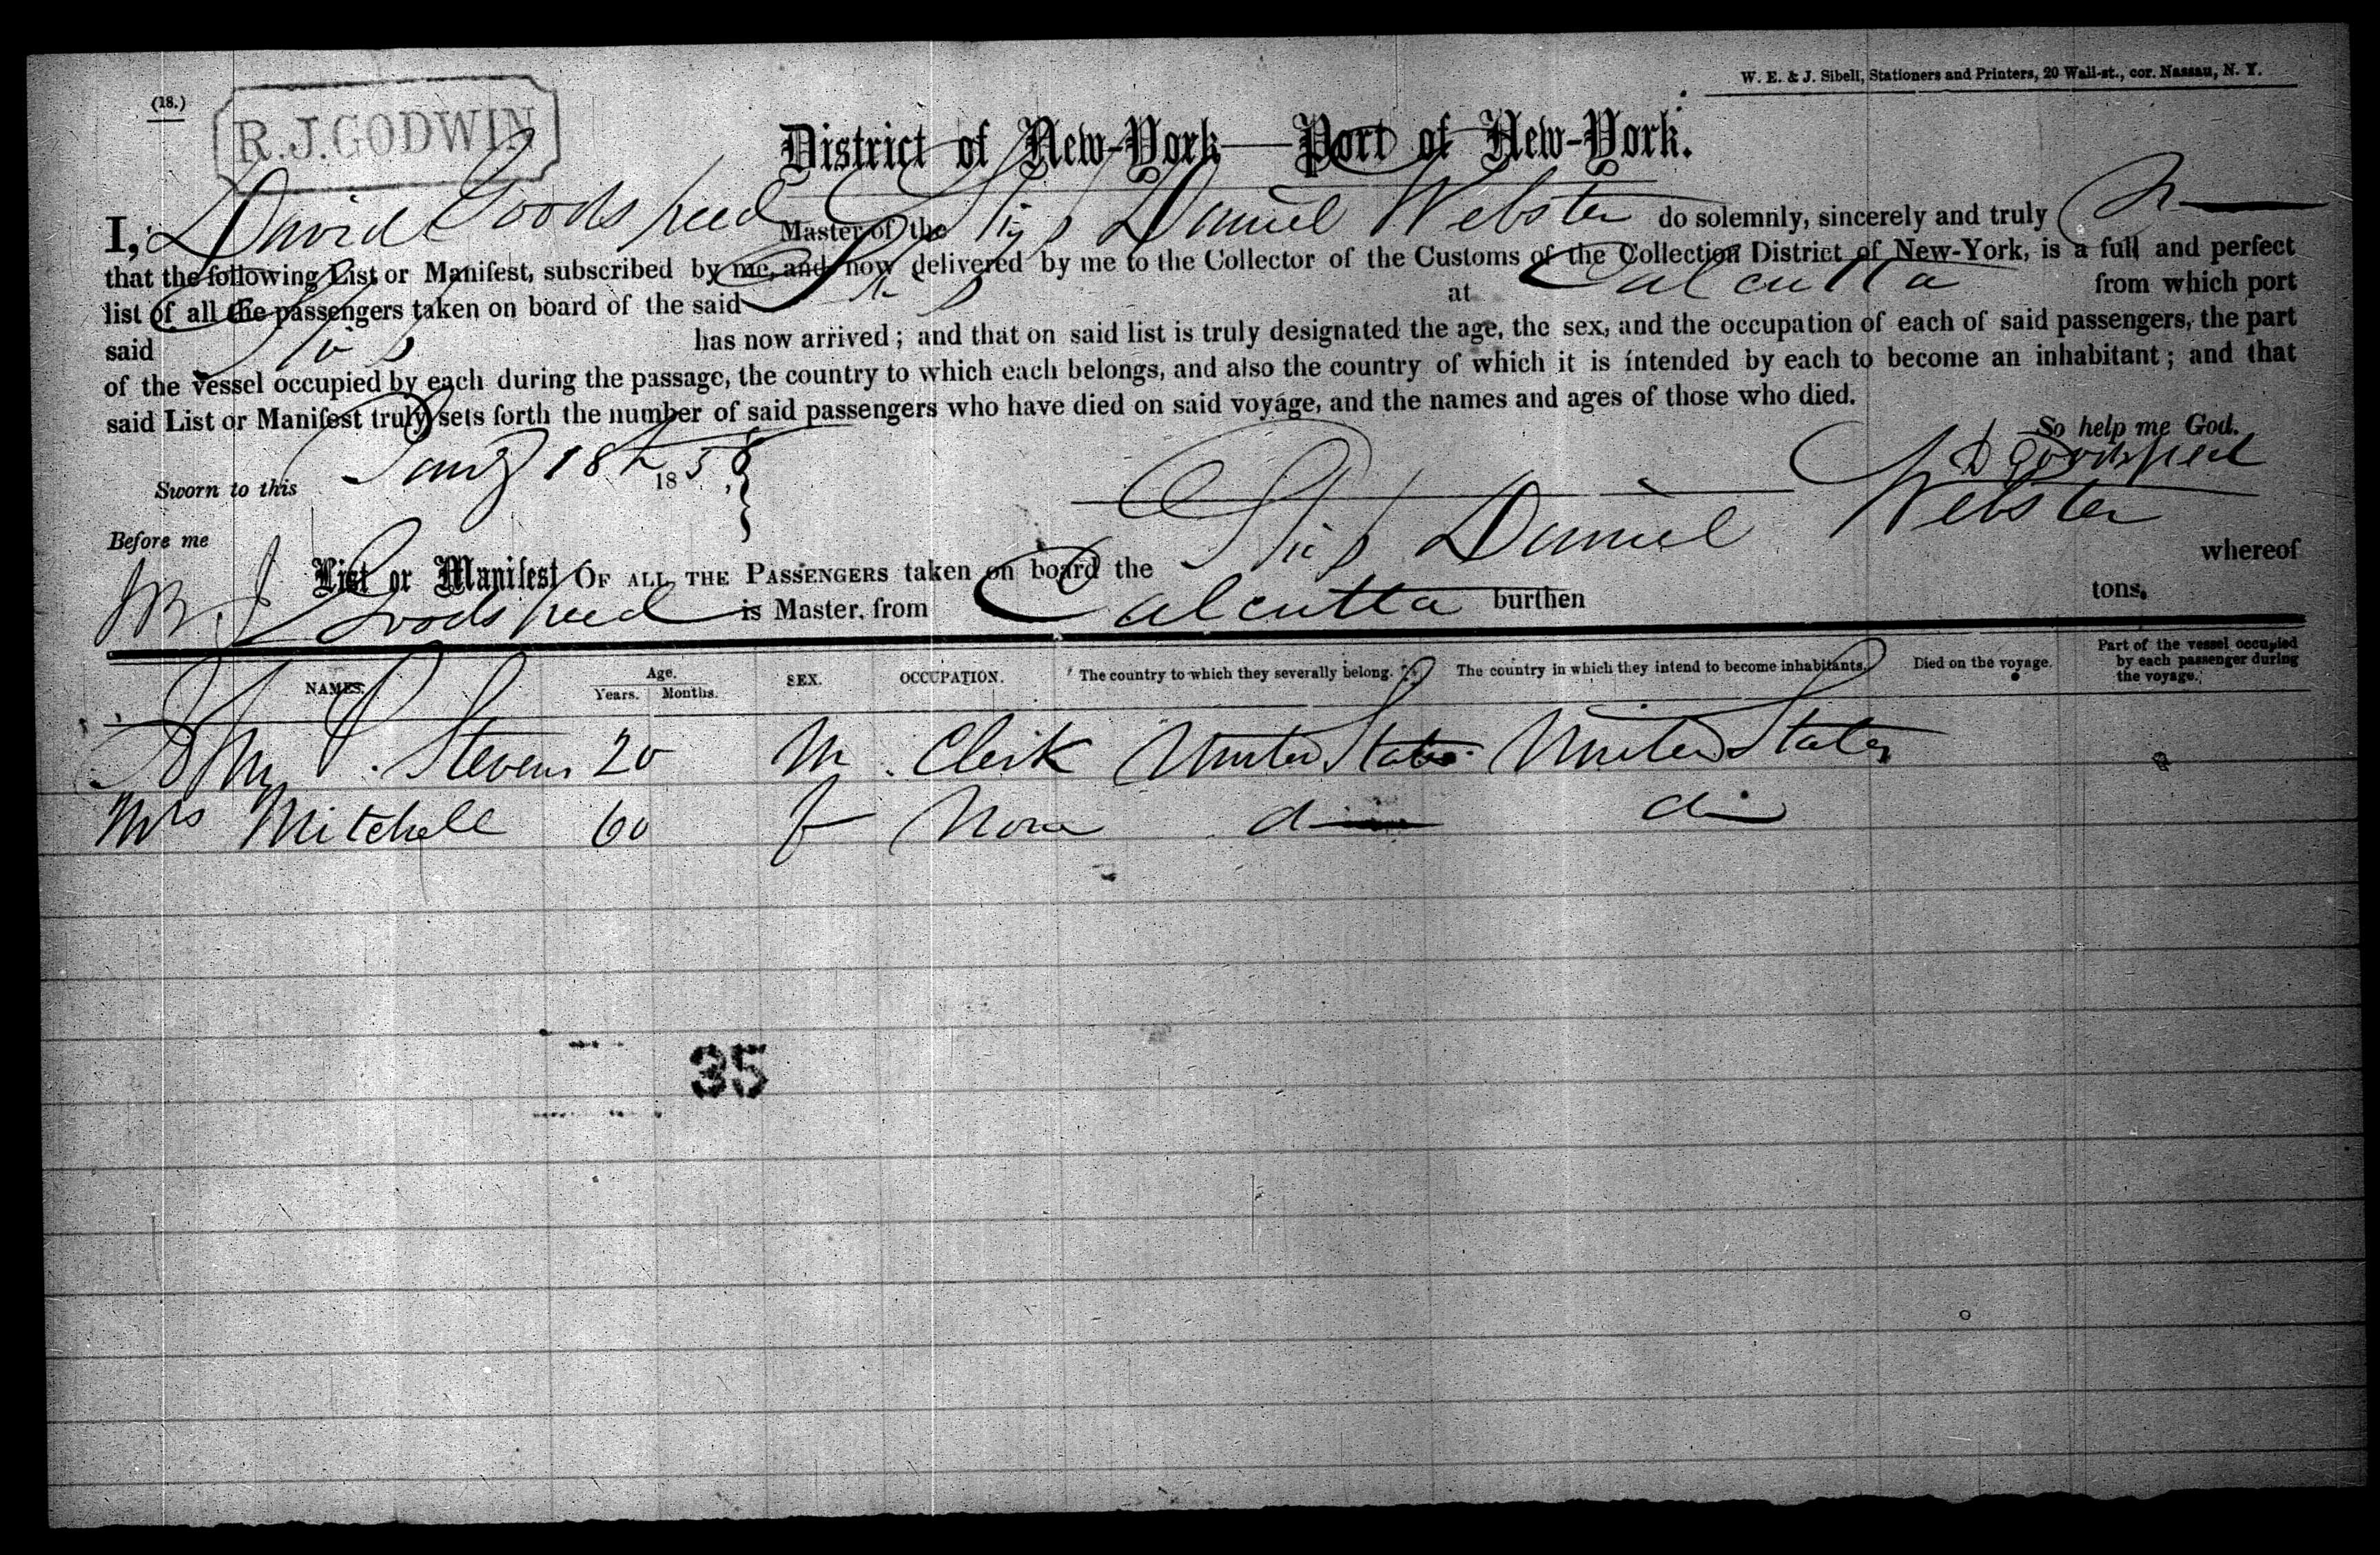 W. E. & J. Sibell, Stationers and Printers, 20 Wall-st., cor. Nassau, N. Y.
(18.)
R.J.GODWIN
District of New-York—Port of New-York.
I, David Goodspeed Master of the Ship Daniel Webster do solemnly, sincerely and truly
that the following List or Manifest, subscribed by me, and now delivered by me to the Collector of the Customs of the Collection District of New-York, is a full and perfect
list of all the passengers taken on board of the said Ship at Calcutta from which port
said Ship has now arrived; and that on said list is truly designated the age, the sex, and the occupation of each of said passengers, the part
of the vessel occupied by each during the passage, the country to which each belongs, and also the country of which it is intended by each to become an inhabitant; and that
said List or Manifest truly sets forth the number of said passengers who have died on said voyage, and the names and ages of those who died.
So help me God.
Sworn to this Jany 18th 1858
D Goodspeed
Before me
List or Manifest OF ALL THE PASSENGERS taken on board the Ship Daniel Webster whereof
Goodspeed is Master, from Calcutta burthen tons.
NAMES. Age. Years. Months. SEX. OCCUPATION. The country to which they severally belong. The country in which they intend to become inhabitants. Died on the voyage. Part of the vessel occupied by each passenger during the voyage.
Stevens 20 M Clerk United States United States
Mrs Mitchell 60 f None do do
35